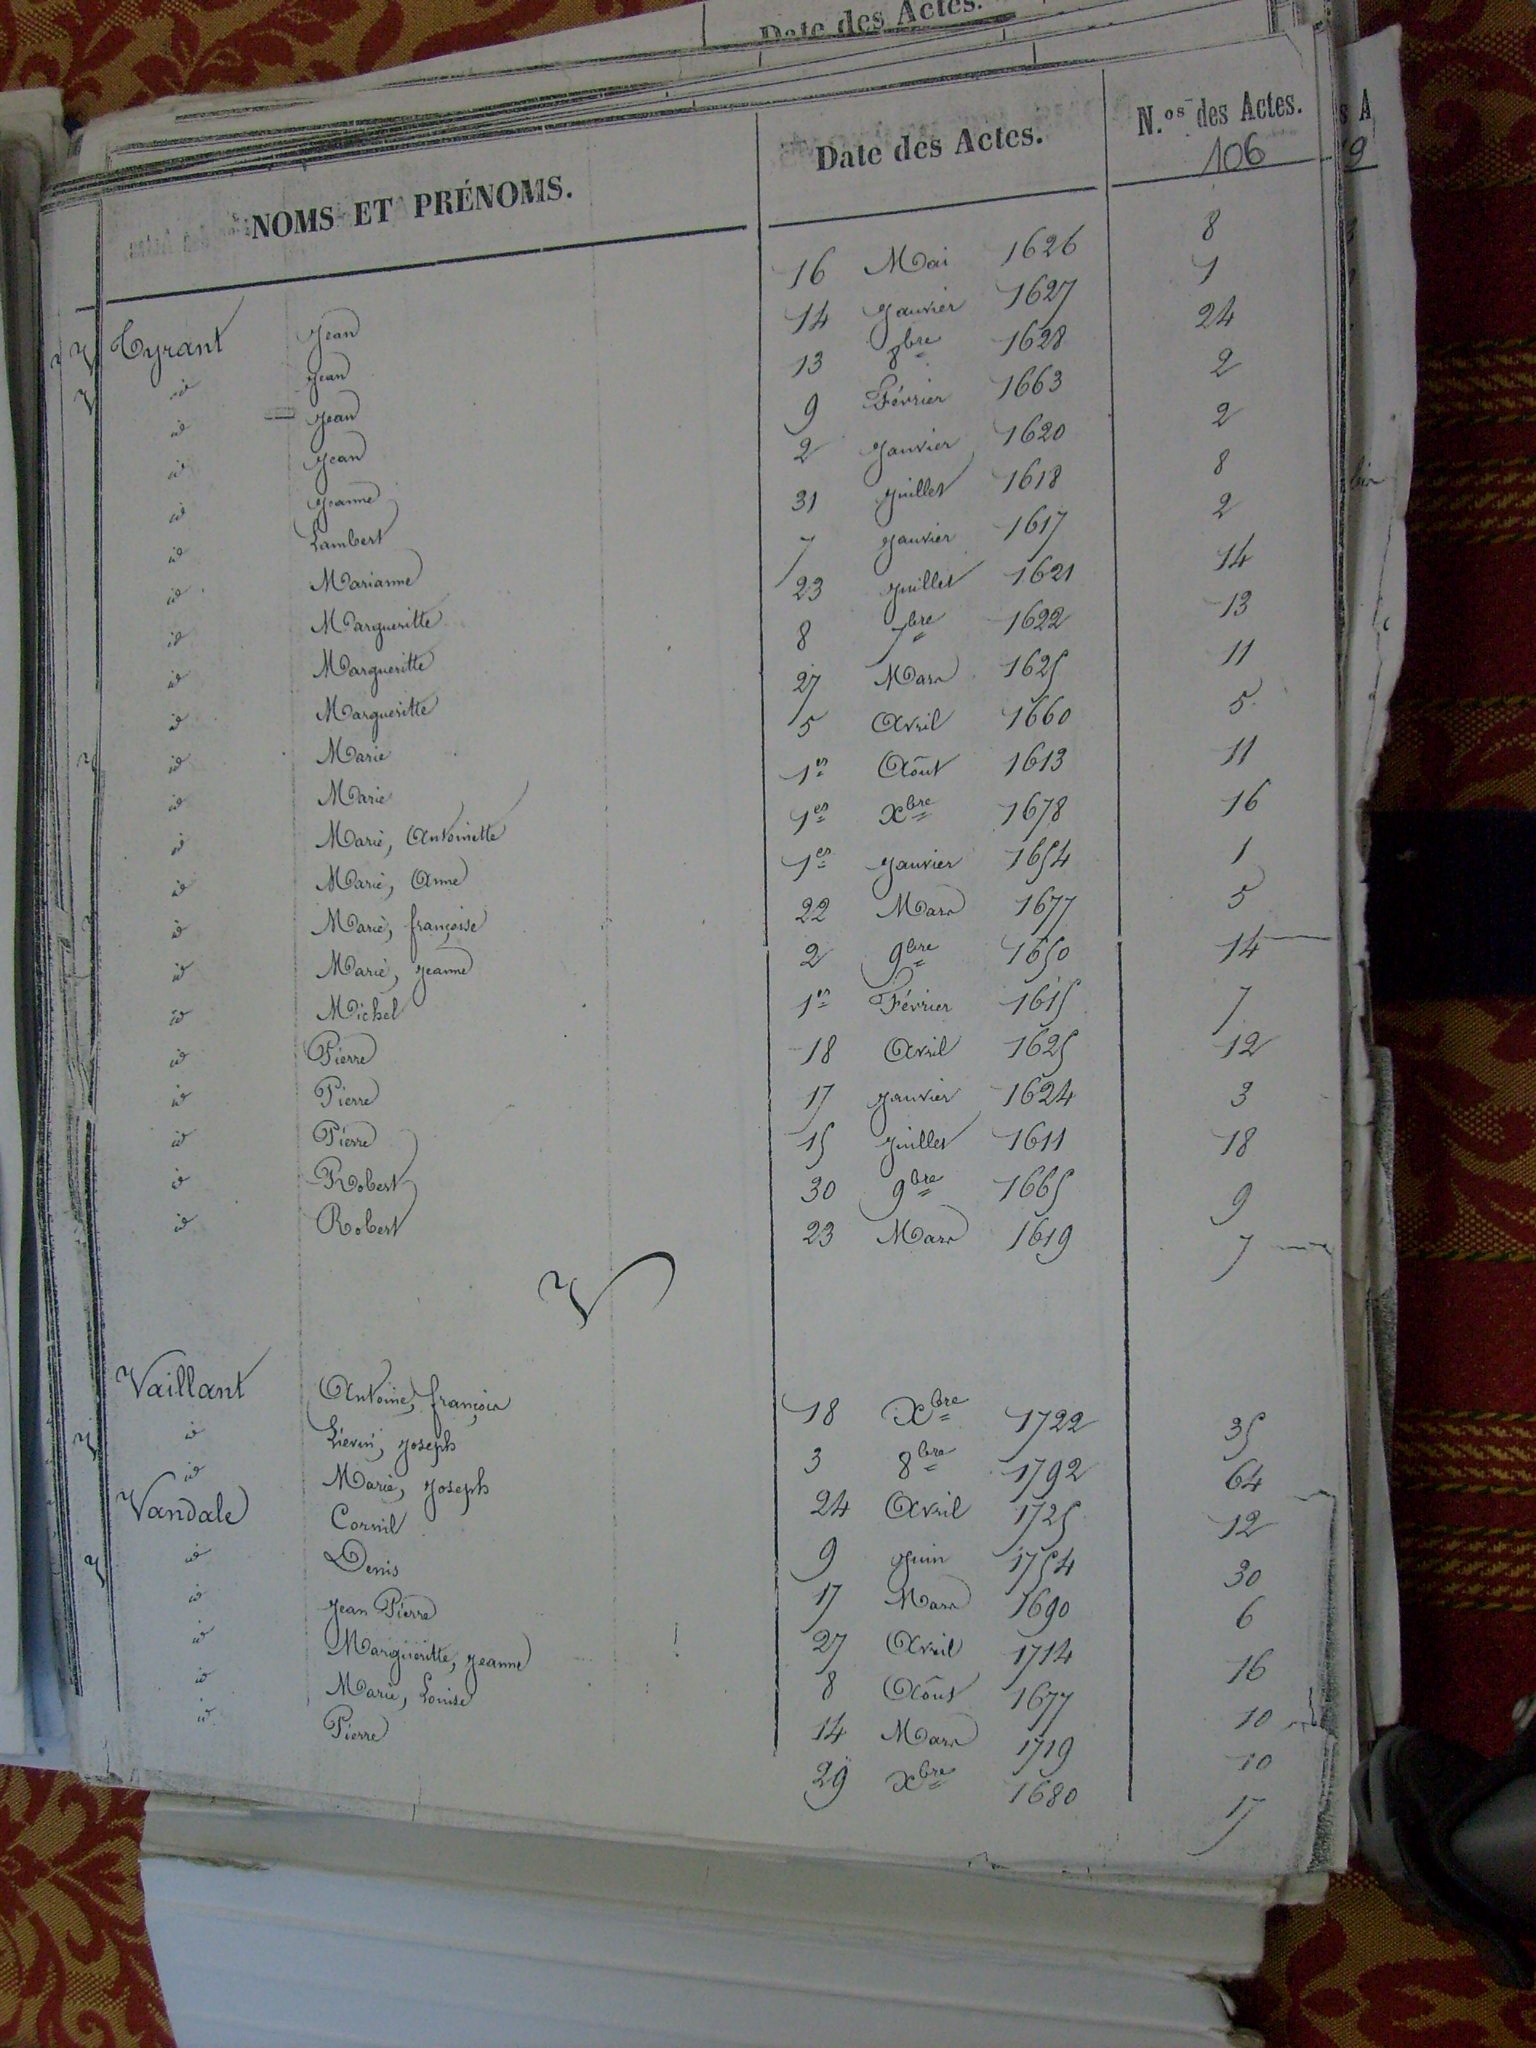 Date des Actes.
NOMS ET PRÉNOMS. Date des Actes. N.os des Actes.
106
Tyrant Jean 16 Mai 1626 8
id Jean 14 janvier 1627 1
id Jean 13 8bre 1628 24
id Jean 9 Février 1663 2
id Jeanne 2 janvier 1620 2
id Lambert 31 juillet 1618 8
id Marianne 7 janvier 1617 2
id Margueritte 23 juillet 1621 14
id Margueritte 8 7bre 1622 13
id Margueritte 27 Mars 1625 11
id Marie 5 Avril 1660 5
id Marie 1er Aôut 1613 11
id Marie, Antoinette 1er Xbre 1678 16
id Marie, Anne 1er janvier 1654 1
id Marie, françoise 22 Mars 1677 5
id Marie, jeanne 2 9bre 1650 14
id Michel 1er Février 1615 7
id Pierre 18 Avril 1625 12
id Pierre 17 janvier 1624 3
id Pierre 15 juillet 1611 18
id Robert 30 9bre 1665 9
id Robert 23 Mars 1619 7
V
Vaillant Antoine, françois 18 Xbre 1722 35
id Liévin, joseph 3 8bre 1792 64
id Marie, joseph 24 Avril 1725 12
Vandale Cornil 9 juin 1754 30
id Denis 17 Mars 1690 6
id Jean Pierre 27 Avril 1714 16
id Margueritte, jeanne 8 Aôut 1677 10
id Marie, Louise 14 Mars 1719 10
id Pierre 29 Xbre 1680 17